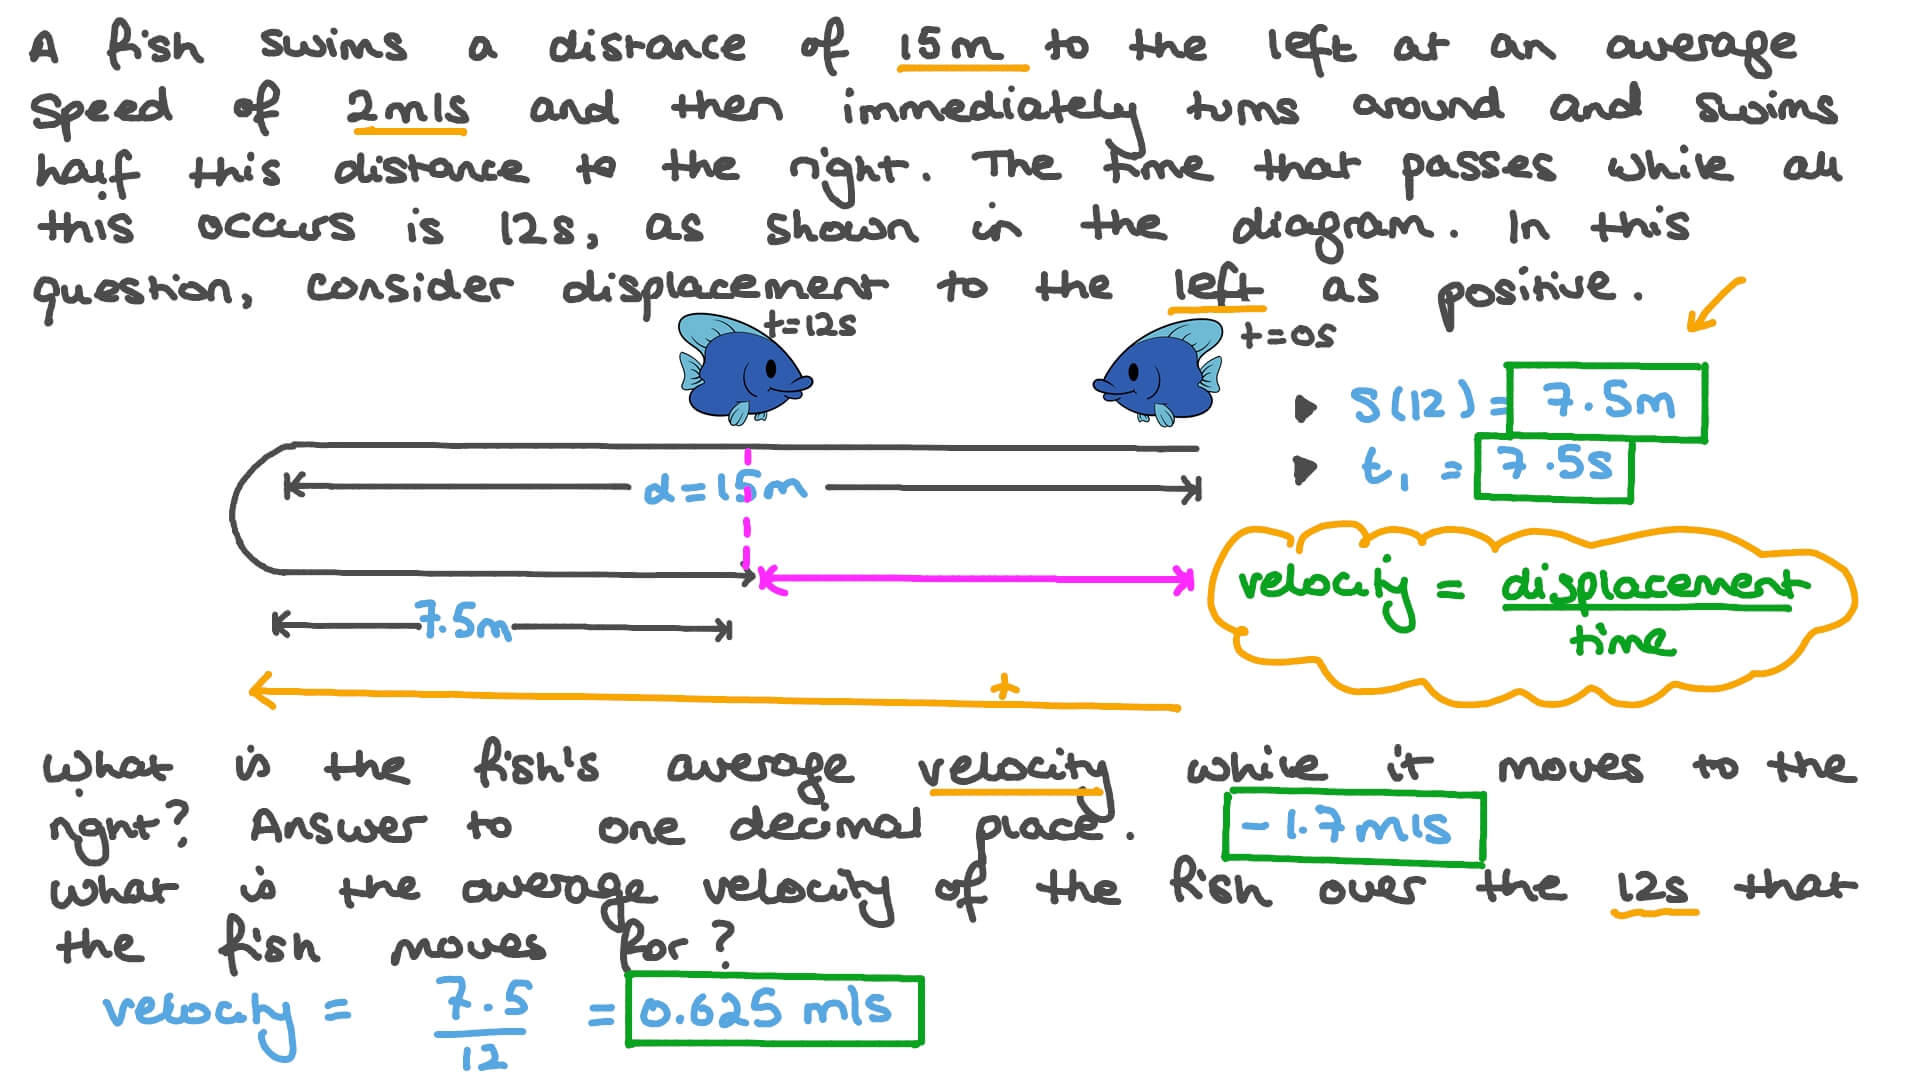 A fish swims a distance of 15m to the left at an average
speed of 2m/s and then immediately turns around and swims
half this distance to the right. The time that passes while all
this occurs is 12s, as shown in the diagram. In this
question, consider displacement to the left as positive.
t=12s
t=0s
▶ S(12) = 7.5m
▶ t₁ = 7.5s
d=15m
velocity = displacement
time
7.5m
+
What is the fish's average velocity while it moves to the
right? Answer to one decimal place. -1.7m/s
What is the average velocity of the fish over the 12s that
the fish moves for?
velocity = 7.5 = 0.625 m/s
12